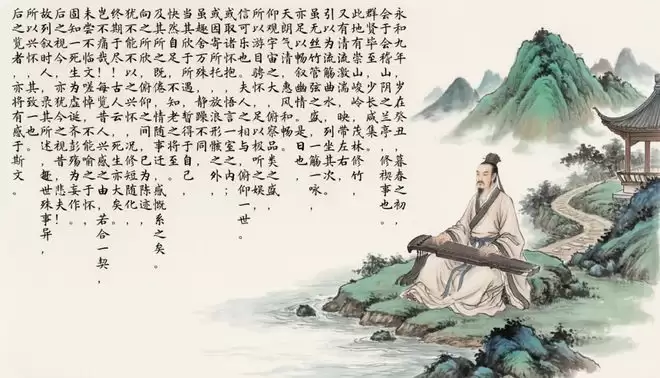 永和九年,岁在癸丑,暮春之初,
会于会稽山阴之兰亭,修禊事也。
群贤毕至,少长咸集。
此地有崇山峻岭,茂林修竹,
又有清流激湍,映带左右,
引以为流觞曲水,列坐其次。
虽无丝竹管弦之盛,一觞一咏,
亦足以畅叙幽情。是日也,
天朗气清,惠风和畅。
仰观宇宙之大,俯察品类之盛,
所以游目骋怀,足以极视听之娱,
信可乐也。夫人之相与,俯仰一世。
或取诸怀抱,悟言一室之内;
或因寄所托,放浪形骸之外,
虽趣舍万殊,静躁不同,
当其欣于所遇,暂得于己,
快然自足,不知老之将至。
及其所之既倦,情随事迁,感慨系之矣。
向之所欣,俯仰之间,已为陈迹,
犹不能不以之兴怀,况修短随化,
终期于尽!古人云:死生亦大矣。
岂不痛哉!每览昔人兴感之由,若合一契,
未尝不临文嗟悼,不能喻之于怀。
固知一死生为虚诞,齐彭殇为妄作。
后之视今,亦犹今之视昔,悲夫!
故列叙时人,录其所述,虽世殊事异,
所以兴怀,其致一也。
后之览者,亦将有感于斯文。